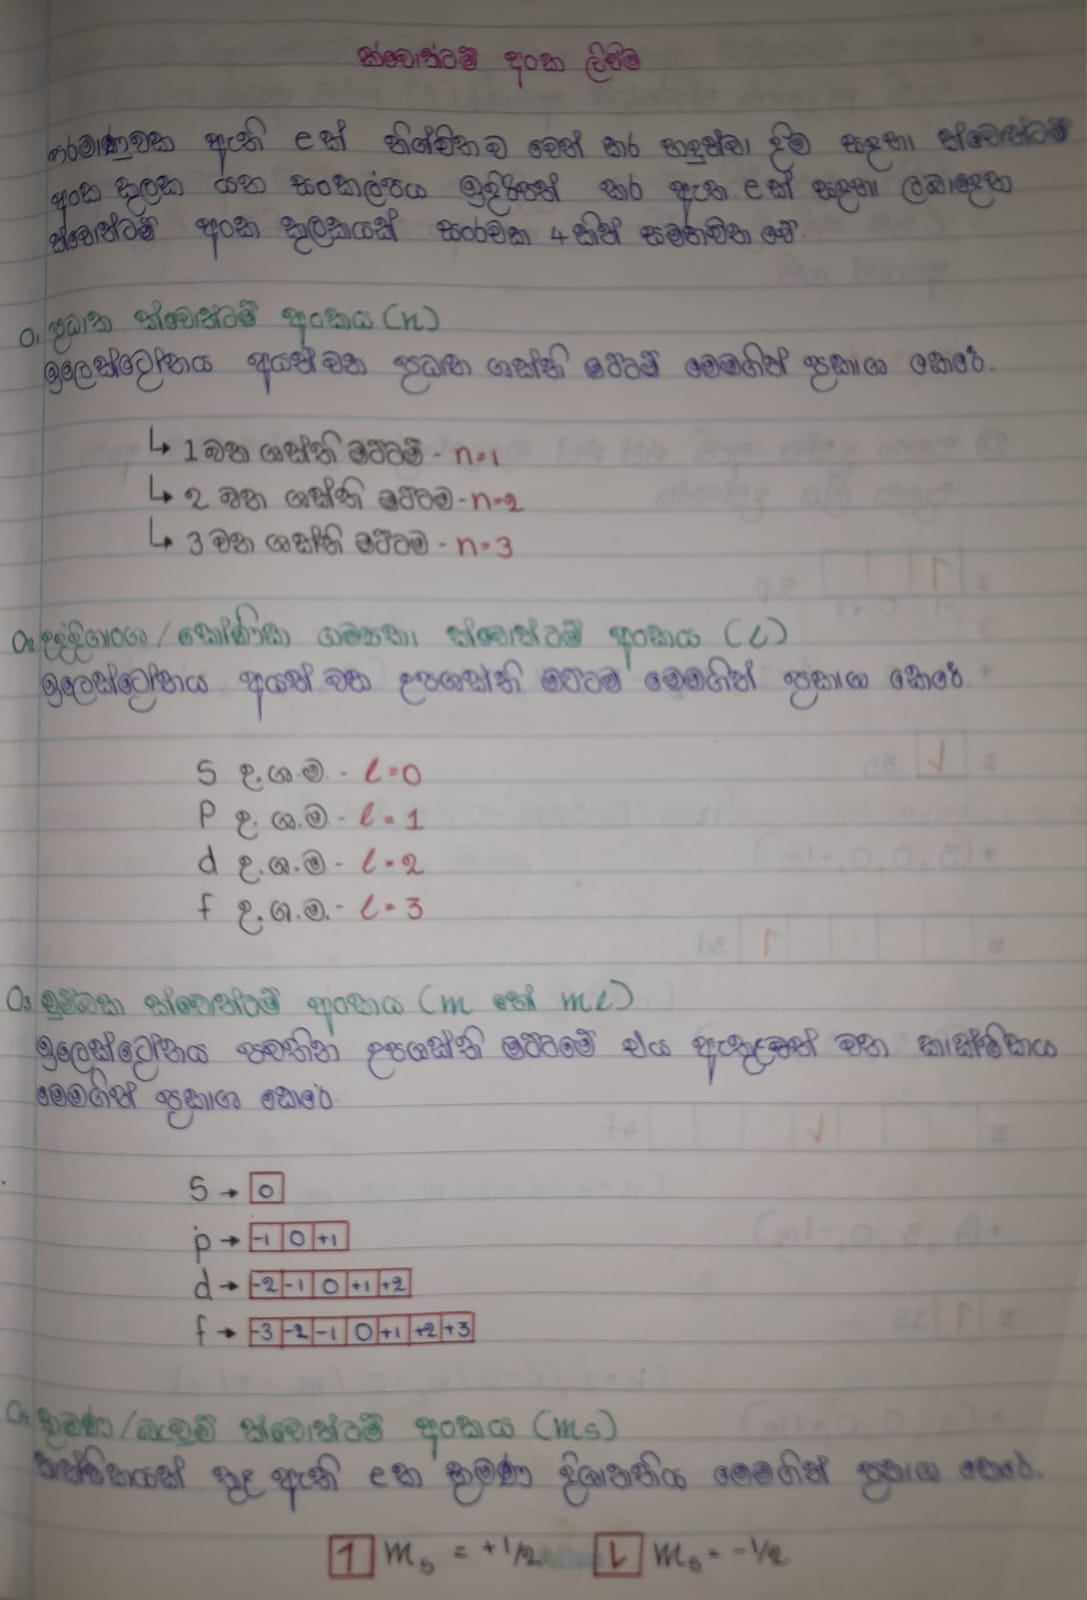 ක්වොන්ටම් අංක ලිවීම
පරමාණුවක ඇති eක් නිශ්චිතව වෙන් කර හඳුන්වා දීම සඳහා ක්වොන්ටම්
අංක කුලක යන සංකල්පය ඉදිරිපත් කර ඇත eක් සඳහා ලබාදෙන
ක්වොන්ටම් අංක කුලකයක් සංරචක 4කින් සමන්විත වේ.
01 ප්‍රධාන ක්වොන්ටම් අංකය (n)
ඉලෙක්ට්‍රෝනය අයත් වන ප්‍රධාන ශක්ති මට්ටම් මෙමගින් ප්‍රකාශ කෙරේ.
↳ 1 වන ශක්ති මට්ටම් - n=1
↳ 2 වන ශක්ති මට්ටම - n=2
↳ 3 වන ශක්ති මට්ටම - n=3
02 උද්දිගාංශ / කෝණික ගම්‍යතා ක්වොන්ටම් අංකය (l)
ඉලෙක්ට්‍රෝනය අයත් වන උපශක්ති මට්ටම මෙමගින් ප්‍රකාශ කෙරේ
S උ.ශ.ම. - l=0
P උ.ශ.ම - l=1
d උ.ශ.ම - l=2
f උ.ශ.ම. - l=3
03 චුම්බක ක්වොන්ටම් අංකය (m හෝ ml)
ඉලෙක්ට්‍රෝනය පවතින උපශක්ති මට්ටමේ එය ඇතුළත් වන කාක්ෂිකය
මෙමගින් ප්‍රකාශ කෙරේ.
S → 0
p → -1 0 +1
d → -2 -1 0 +1 +2
f → -3 -2 -1 0 +1 +2 +3
04 භ්‍රමණ / බැමුම් ක්වොන්ටම් අංකය (ms)
කාක්ෂිකයක් තුළ ඇති eක භ්‍රමණ දිශානතිය මෙමගින් ප්‍රකාශ කෙරේ.
↿ ms = +1/2 ⇂ ms = -1/2